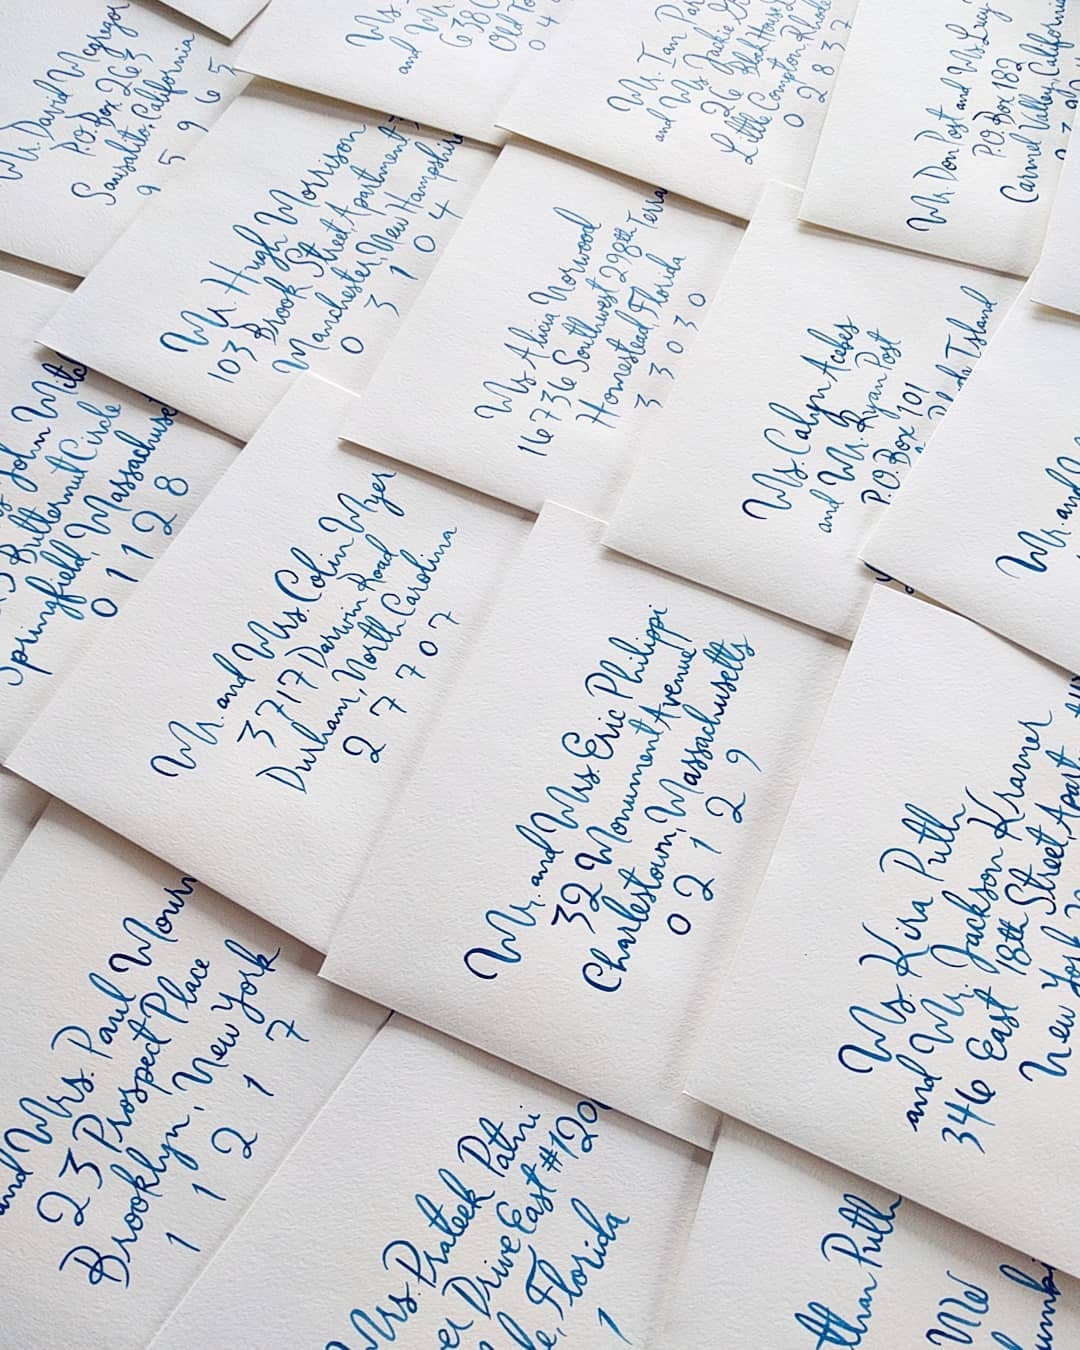 Mr. David Mcgregor
P.O. Box 263
Sausalito, California
9 5 9 6 5
and Mr.
638
Old
0 4
Mr. Ian
and Ms. Jackie
26 Block House
Little Compton, Rhode
0 2 8 3 7
Mr. Don Post and Ms. Lucy
P.O. Box 182
Carmel Valley, California
Mr. Hugh Morrison
103 Brook Street, Apartment
Manchester, New Hampshire
0 3 1 0 4
Ms. Alicia Norwood
16736 Southwest 298th
Homestead, Florida
3 3 0 3 0
Ms. Calyn Acebes
and Mr. Ryan Post
P.O. Box 101
Island
Mr. and
John
Butternut Circle
Springfield, Massachuset
0 1 1 2 8
Mr. and Mrs. Colin Wyer
3717 Darwin Road
Durham, North Carolina
2 7 7 0 7
Mr. and Mrs. Eric Philippi
32 Monument Avenue
Charlestown, Massachusetts
0 2 1 2 9
Ms. Kira Puth
and Mr. Jackson Kramer
346 East 18th Street, Apart
New York
and Mrs. Paul
23 Prospect Place
Brooklyn, New York
1 1 2 1 7
Mrs. Prateek Patni
Drive East #120
Florida
1
Puth